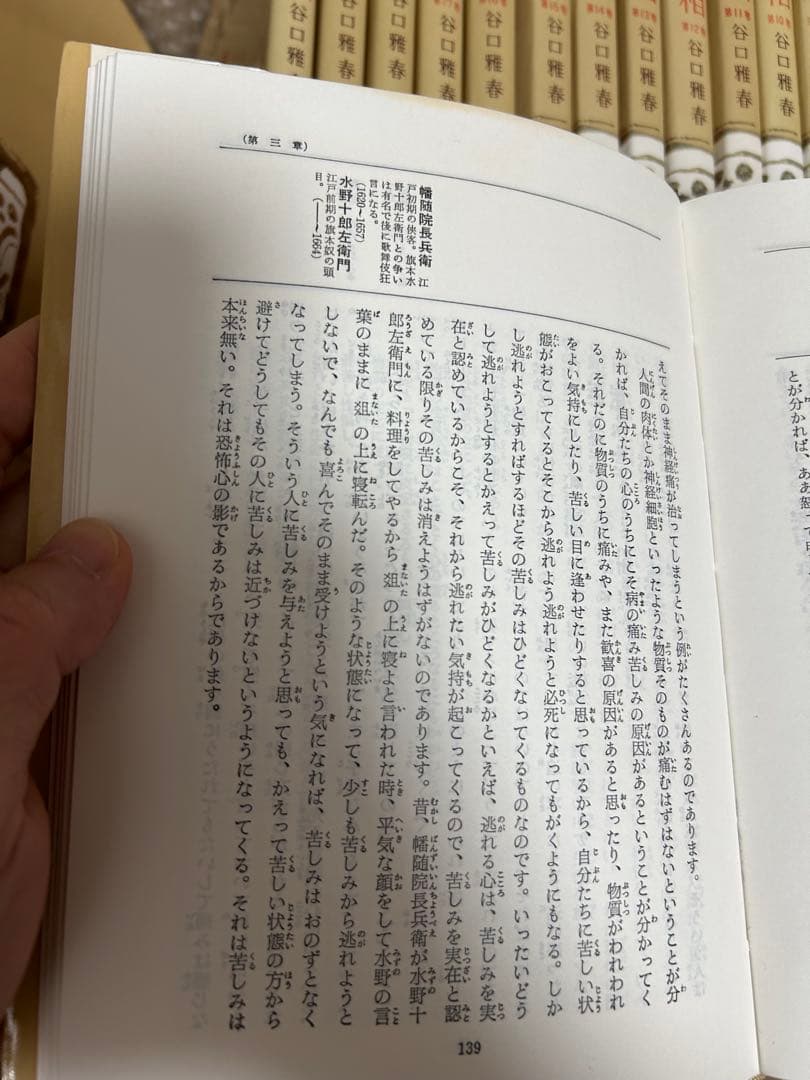 谷口雅春
谷口雅春
谷口雅春
第17巻 谷口雅春
第16巻 谷口雅春
第15巻 谷口雅春
第14巻 谷口雅春
第13巻 谷口雅春
相 第12巻 谷口雅春
第11巻 谷口雅春
第10巻 谷口雅春
(第三章)
幡随院長兵衛 江
戸初期の俠客。旗本水
野十郎左衛門との争い
は有名で後に歌舞伎狂
言になる。
(1620〜1657)
水野十郎左衛門
江戸前期の旗本奴の頭
目。(――〜1664)
えてそのまま神経痛が治ってしまうという例がたくさんあるのであります。
人間の肉体とか神経細胞といったような物質そのものが痛むはずはないということが分
かれば、自分たちの心のうちにこそ病の痛み苦しみの原因があるということが分かってく
る。それだのに物質のうちに痛みや、また歓喜の原因があると思ったり、物質がわれわれ
をよい気持にしたり、苦しい目に逢わせたりすると思っているから、自分たちに苦しい状
態がおこってくるとそこから逃れよう逃れようと必死になってもがくようにもなる。しか
し逃れようとすればするほどその苦しみはひどくなってくるものなのです。いったいどう
して逃れようとするとかえって苦しみがひどくなるかといえば、逃れる心は、苦しみを実
在と認めているからこそ、それから逃れたい気持が起こってくるので、苦しみを実在と認
めている限りその苦しみは消えようはずがないのであります。昔、幡随院長兵衛が水野十
郎左衛門に、料理をしてやるから俎の上に寝よと言われた時、平気な顔をして水野の言
葉のままに俎の上に寝転んだ。そのような状態になって、少しも苦しみから逃れようと
しないで、なんでも喜んでそのまま受けようという気になれば、苦しみはおのずとなく
なってしまう。そういう人に苦しみを与えようと思っても、かえって苦しい状態の方から
避けてどうしてもその人に苦しみは近づけないというようになってくる。それは苦しみは
本来無い。それは恐怖心の影であるからであります。
139
とが分かれば、ああ